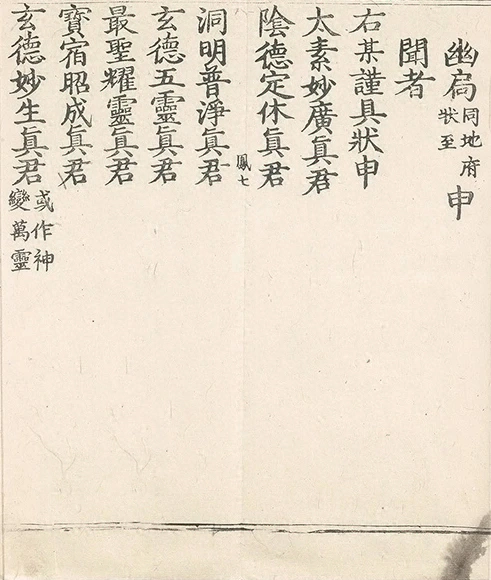 幽扃同地府狀至申
聞者
右某謹具狀申
太素妙廣眞君
陰德定休眞君
鳳七
洞明普淨眞君
玄德五靈眞君
最聖耀靈眞君
寶宿昭成眞君
玄德妙生眞君或作神變萬靈